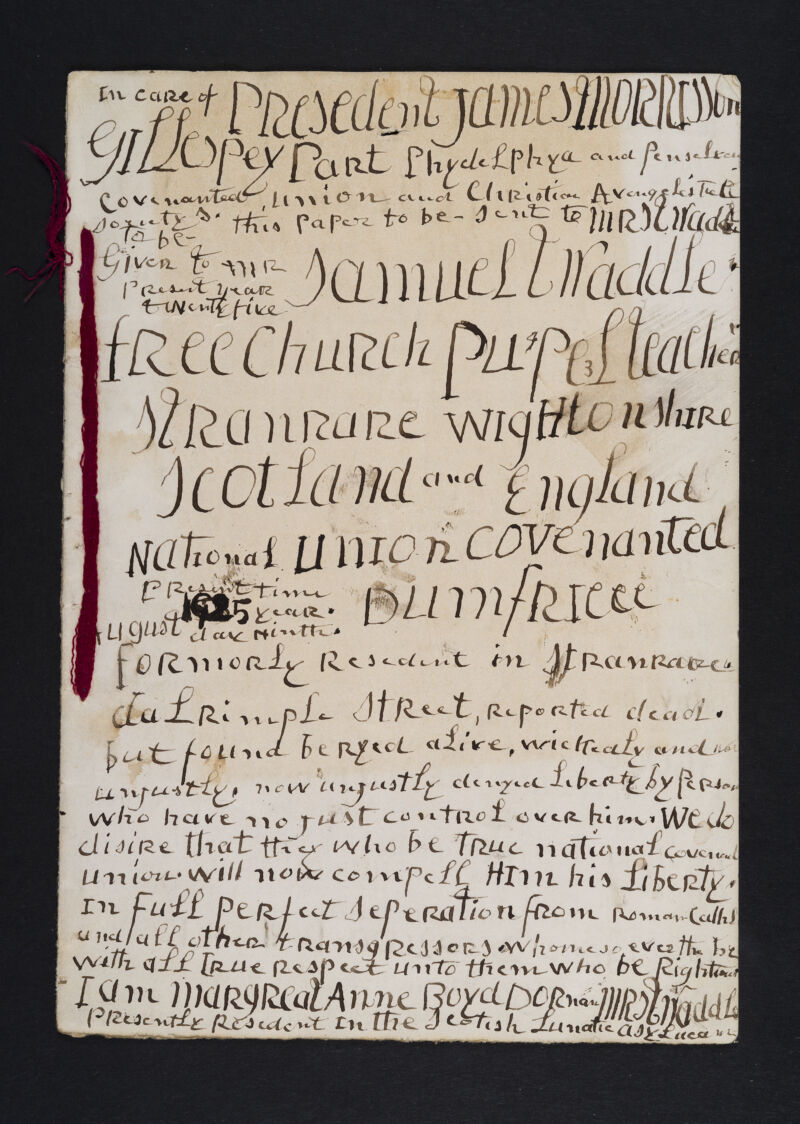 In care of PResedent James MORRISSon
GILLespey PaRt PhydeLphya and
covenanted union and Christian
Soxietys. this PapeR to be- Sent to MRS t Waddle
to be-
Given to MR
Present year
twenty five
Samuel t Waddle.
fRee ChuRch teacher
StRanRaRe WIgHtonshiRe
ScotLand and EngLand
National UNION COVenanted
PResent time
1925 year.
August day ninth.
DumfRIeee
foRmoRLy Resedent in StRanRaRe.
daLRimpLe StReet, RepoRted dead.
but found beRyed aLive, wickedLy and
unjustLy. now unjustLy denyed LibeRty by PeRson
who have no just contRoL oveR him. We do
disiRe that they who be tRue nationaL covenant
union. will now compeLL HIm his LibeRty.
In fuLL PeRfect SepeRation fRom Roman
and all otheR tRansgRessoRs whomesoeveR the be
with aLL tRue Respect unto them who be Righteous
I am MaRgReat Anne Boyd DoRnan MRS t Waddle
PResentLy Resedent In the Scotish Lunatic asyLuem